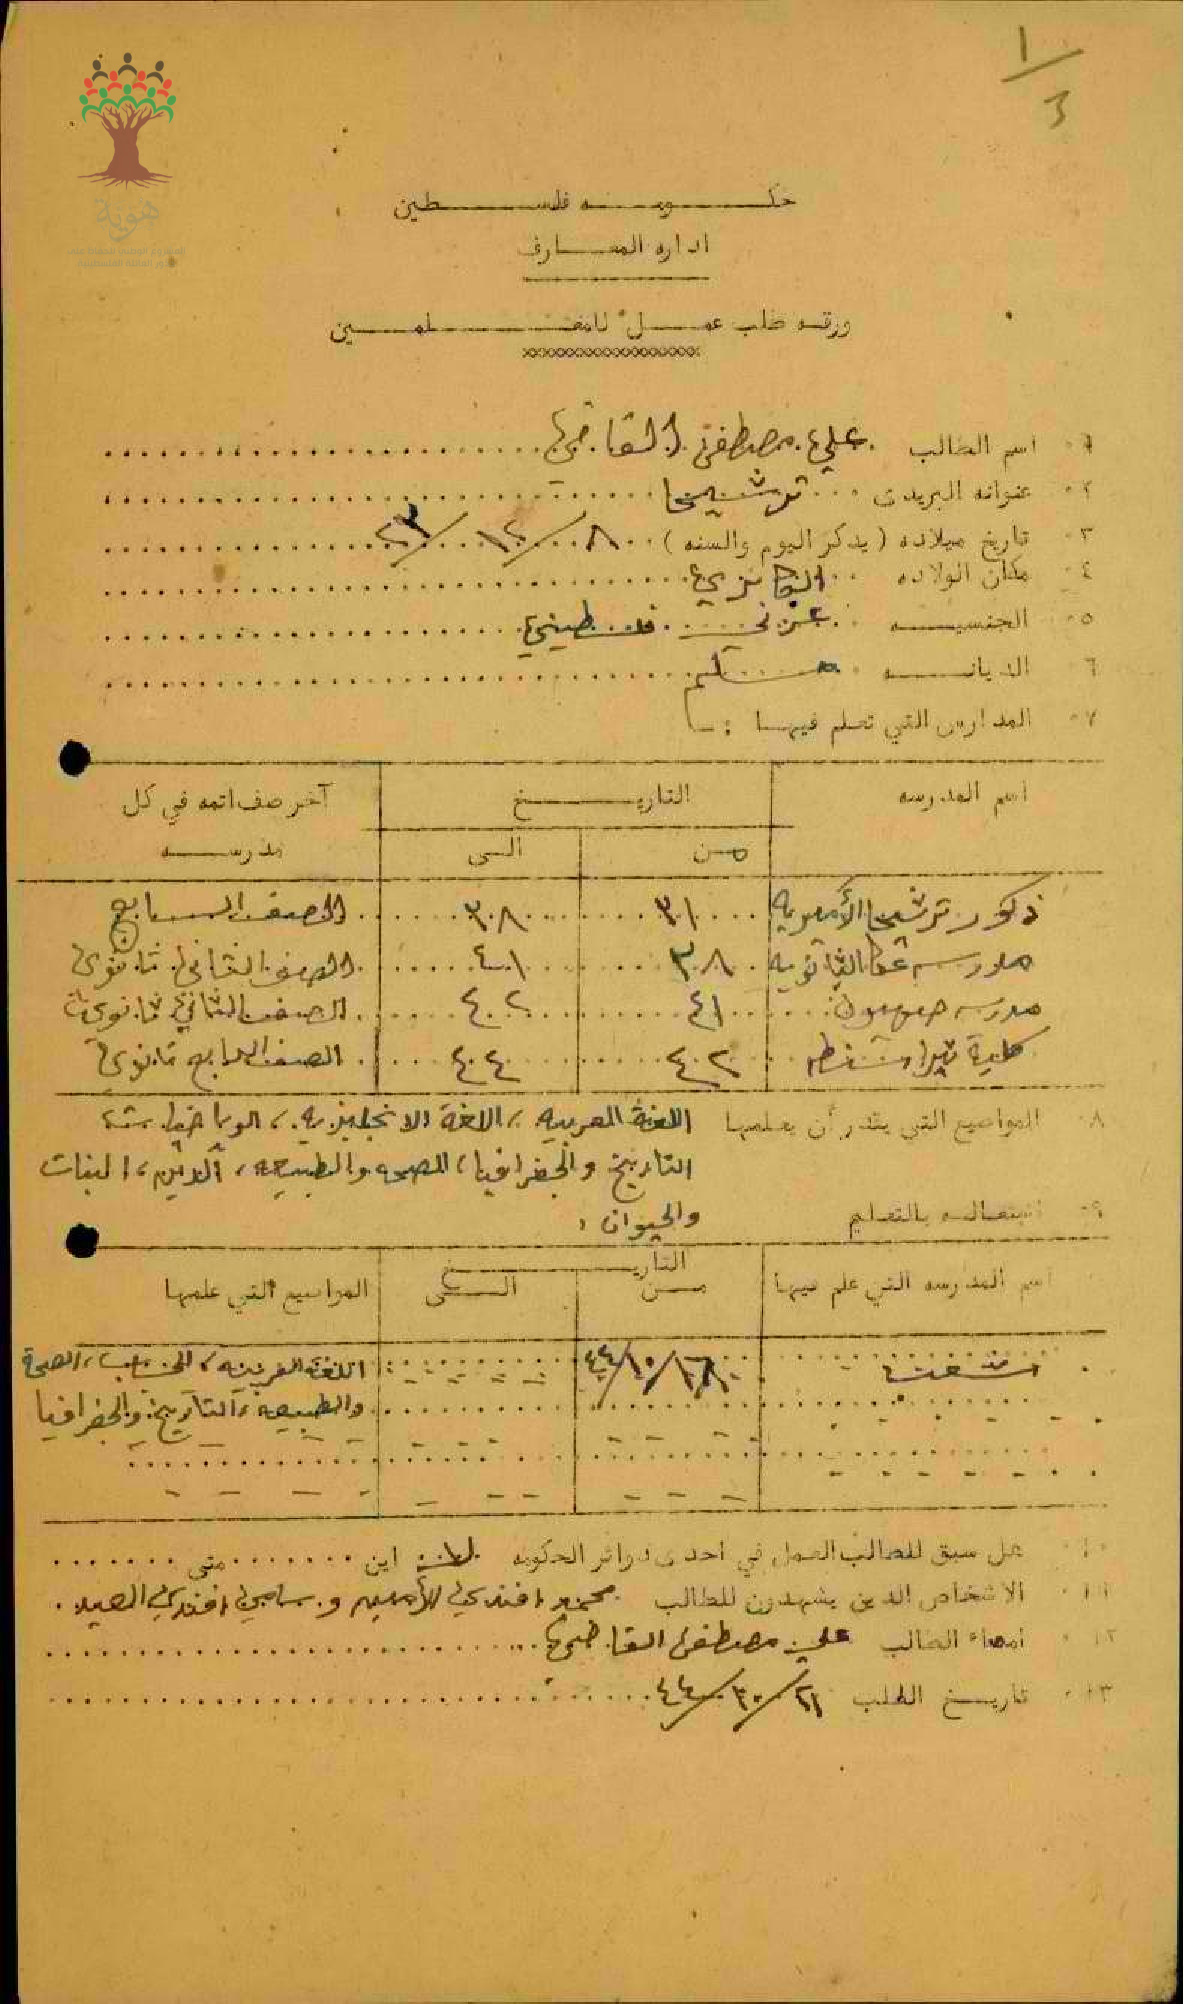 ١/٣
هوية
حكومة فلسطين
اداره المعارف
ورقه طلب عمل للمعلمين
١٠ اسم الطالب علي مصطفى القاضي
٢٠ عنوانه البريدى ترشيحا
٣٠ تاريخ ميلاده (يذكر اليوم والسنه) ٨/١٢/٢٣
٤٠ مكان الولاده
٥٠ الجنسيه عربي فلسطيني
٦٠ الديانه مسلم
٧٠ المدارس التي تعلم فيها :ـ
اسم المدرسه التاريخ آخر صف اتمه في كل مدرسه
من الى
ذكور ترشيحا الأميريه ٣١ ٣٨ الصف السابع
مدرسه عكا الثانويه ٣٨ ٤١ الصف الثاني ثانوي
مدرسه صهيون ٤١ ٤٢ الصف الثاني ثانوي
كلية تيراسنطه ٤٢ ٤٤ الصف الرابع ثانوي
٨٠ المواضيع التي يقدر أن يعلمها اللغة العربيه، اللغة الانجليزيه، الرياضيات،
التاريخ والجغرافيا، الصحه والطبيعه، الدين، النبات
والحيوان،
٩٠ اشتغاله بالتعليم
اسم المدرسه التي علم فيها التاريخ المواضيع التي علمها
من الى
شعب ١٦/١٠/٤٤ اللغة العربيه، الحساب، الصحة
والطبيعه، التاريخ والجغرافيا
١٠٠ هل سبق للطالب العمل في احدى دوائر الحكومه لا اين متى
١١٠ الاشخاص الذين يشهدون للطالب محمود افندي الأمير وسامي افندي العيد.
١٢٠ امضاء الطالب علي مصطفى القاضي
١٣٠ تاريخ الطلب ٢١/١٠/٤٤